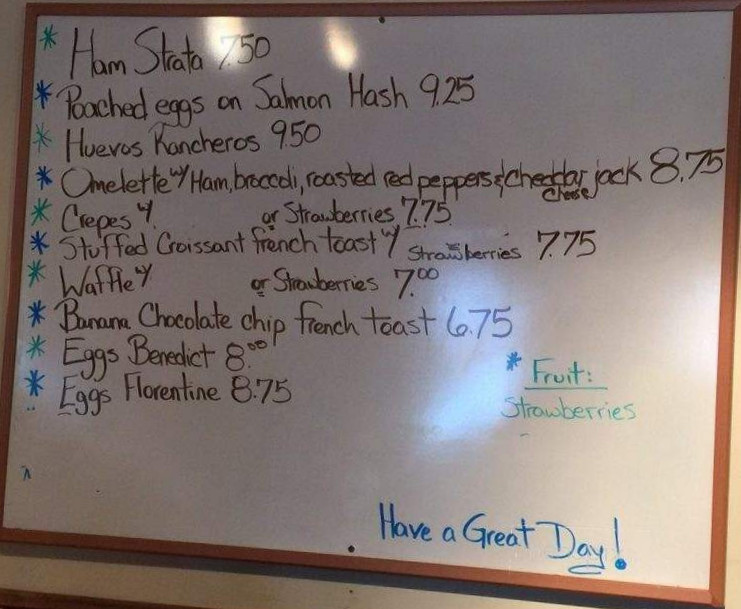 * Ham Strata 7.50
* Poached eggs on Salmon Hash 9.25
* Huevos Rancheros 9.50
* Omelette w/ Ham, broccoli, roasted red peppers & cheddar jack 8.75
Cheese
* Crepes w/ or Strawberries 7.75
* Stuffed Croissant french toast w/ Strawberries 7.75
* Waffle w/ or Strawberries 7.00
* Banana Chocolate chip french toast 6.75
* Eggs Benedict 8.00
* Eggs Florentine 8.75
* Fruit:
Strawberries
Have a Great Day!